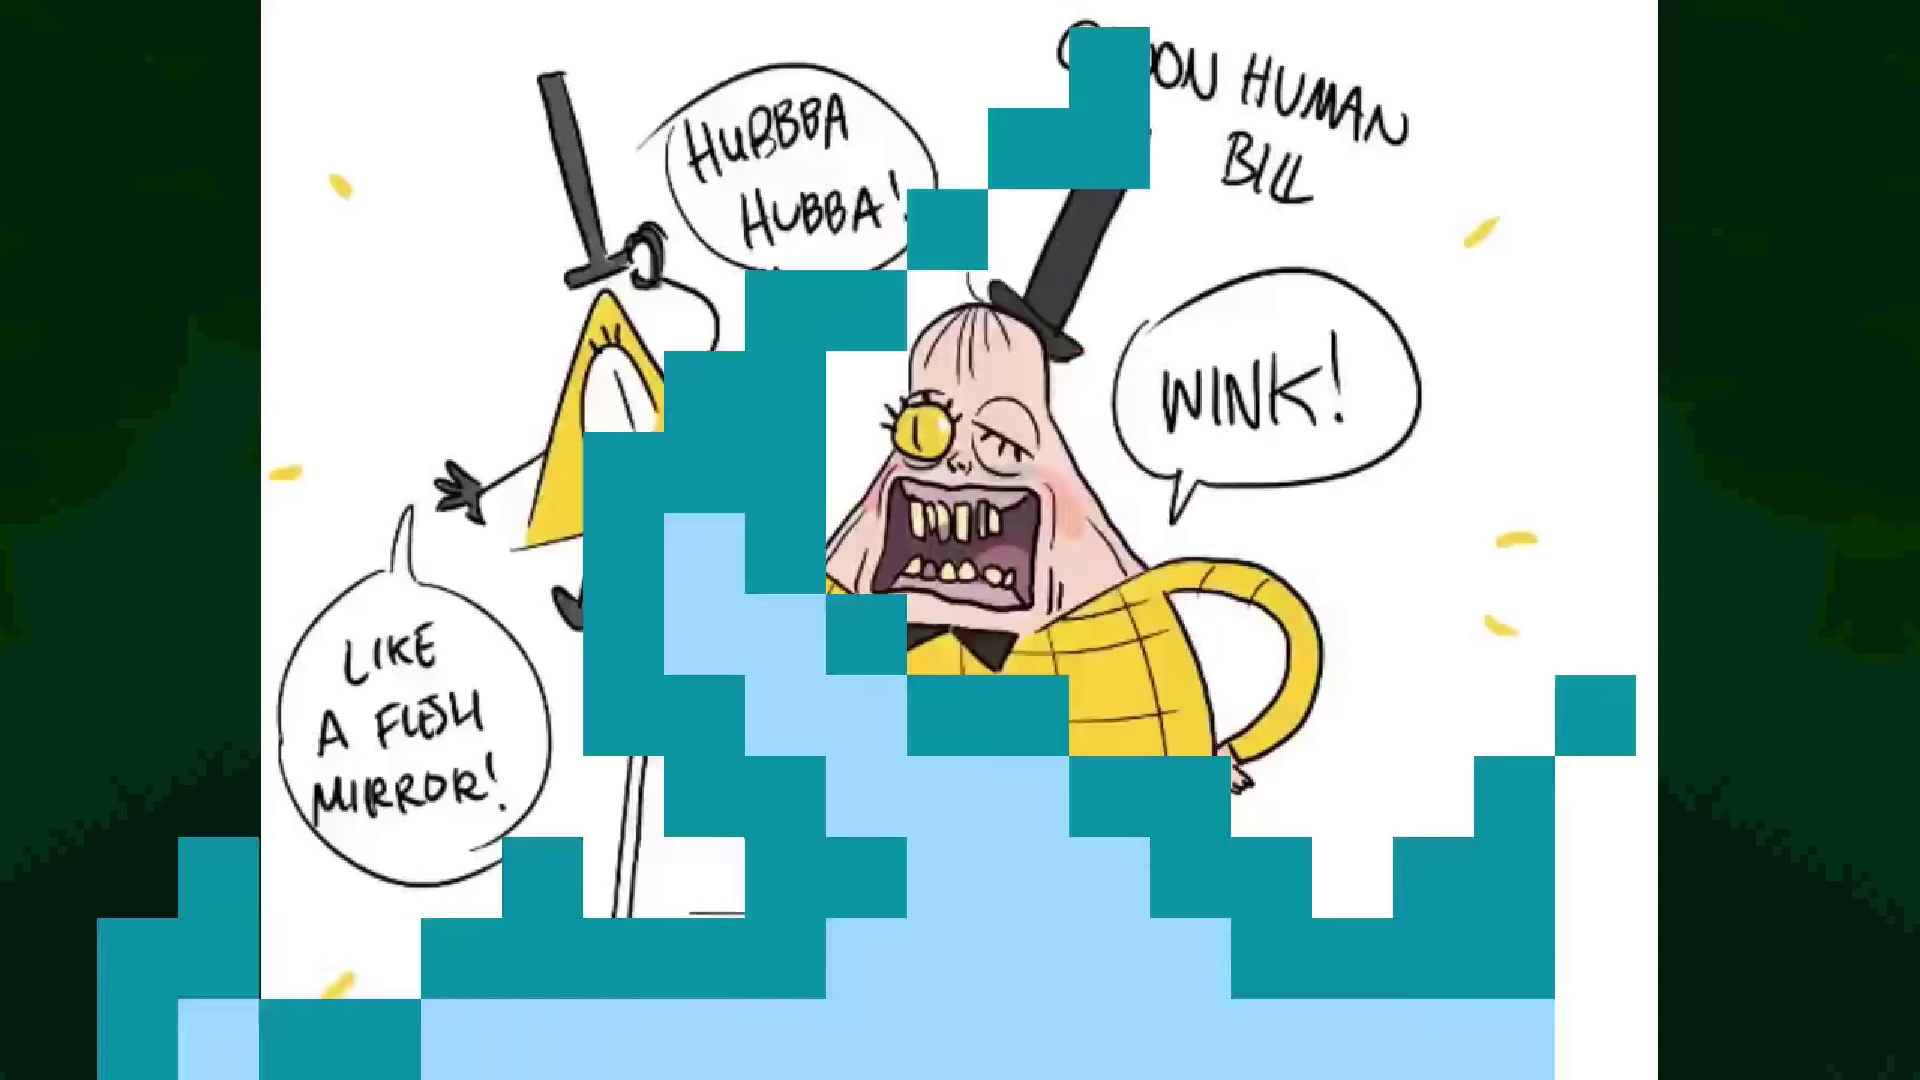 HUBBBA
HUBBA!
HUMAN
BILL
WINK!
LIKE
A FLESH
MIRROR!